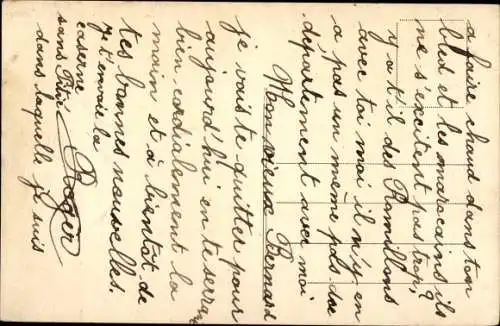 a faire chaud dans ton
bled et les marocains ils
ne s'excitent pas trop,?
y a t'il des Romillons
avec toi moi il n'y en
a pas un même pas du
département avec moi
Mon vieux Bernard
je vais te quitter pour
aujourd'hui en te serrant
bien cordialement la
main et à bientôt de
tes bonnes nouvelles.
Roger
Je t'envoie la
caserne
sans
dans laquelle je suis